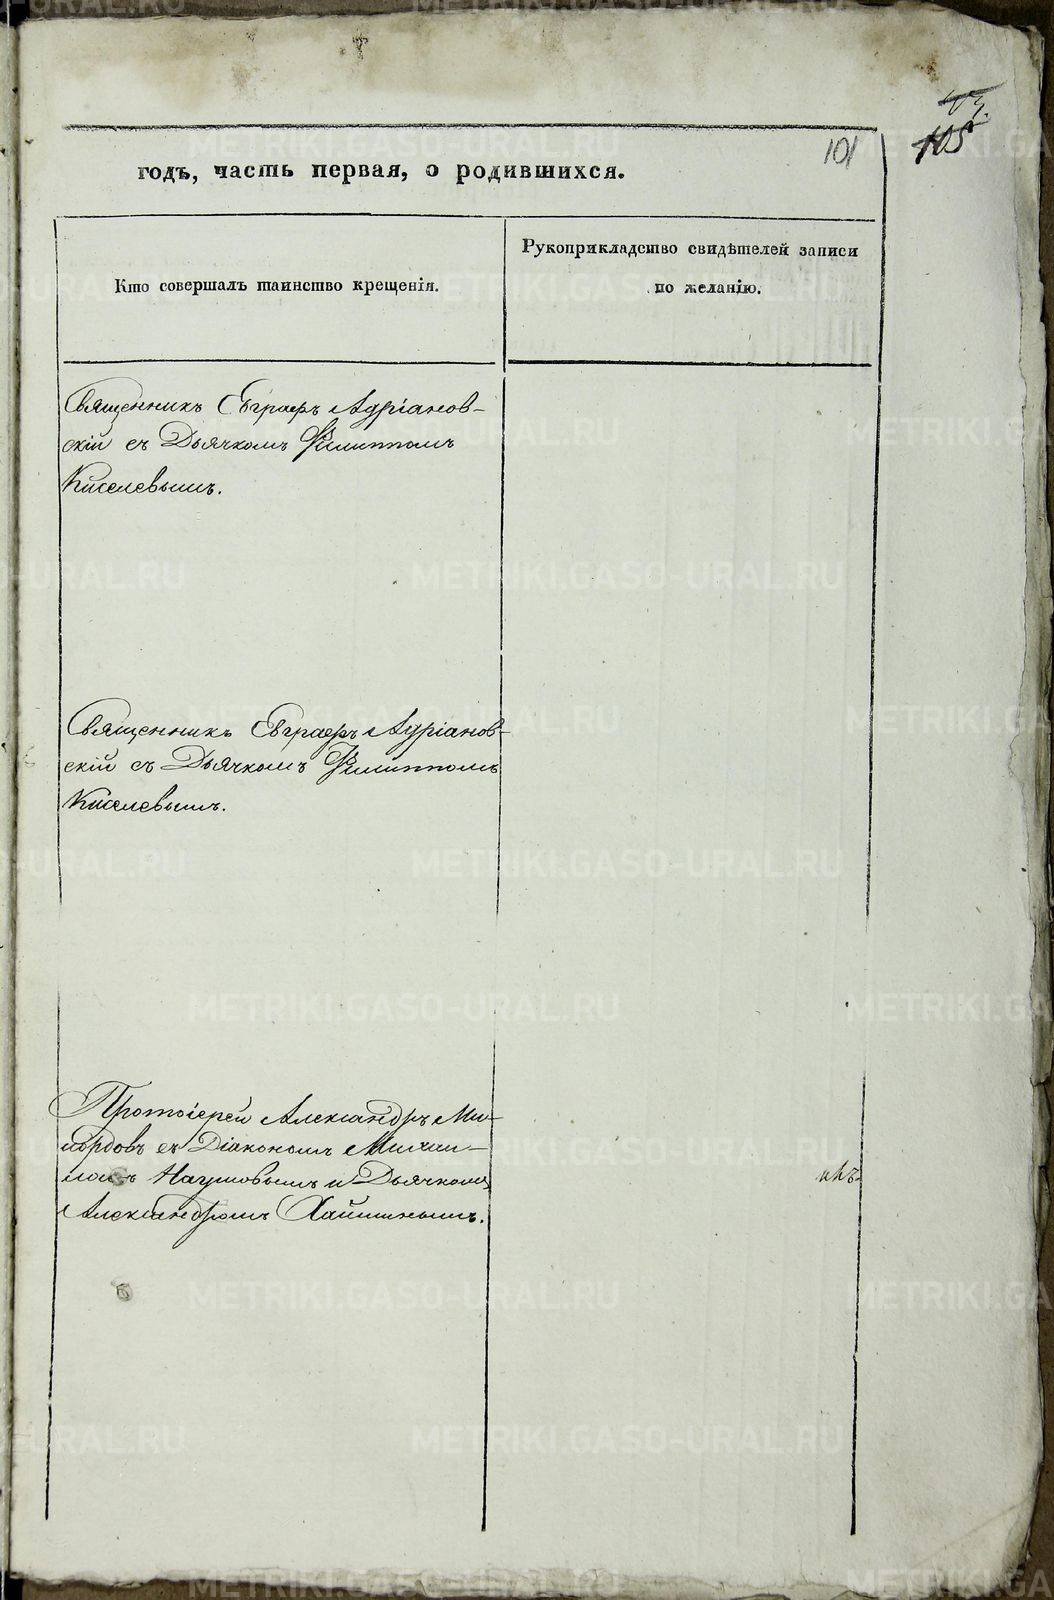 101
105
годъ, часть первая, о родившихся.
Кто совершалъ таинство крещенія.
Рукоприкладство свидѣтелей записи
по желанію.
Священникъ Евграфъ Адріанов-
скій съ Дьячкомъ Филиппомъ
Киселевымъ.
Священникъ Евграфъ Адріанов-
скій съ Дьячкомъ Филиппомъ
Киселевымъ.
Протоіерей Александръ Ми-
лордовъ съ Діакономъ Михаи-
ломъ Наумовымъ и Дьячкомъ
Александромъ Хайминымъ.
METRIKI.GASO-URAL.RU